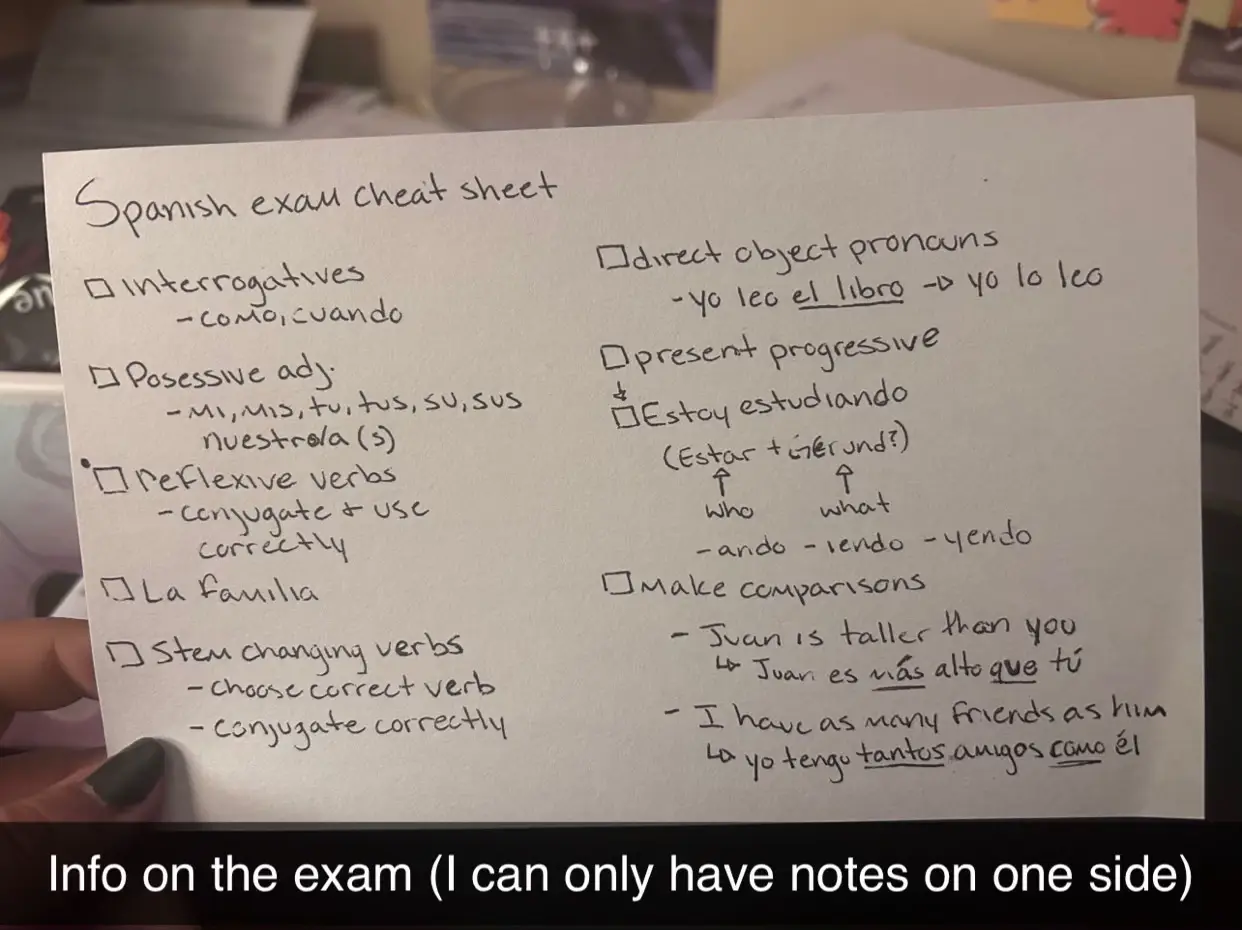 Spanish exam cheat sheet
interrogatives
- como, cuando
Posessive adj.
- mi, mis, tu, tus, su, sus
nuestro/a (s)
reflexive verbs
- conjugate + use
correctly
La familia
Stem changing verbs
- choose correct verb
- conjugate correctly
direct object pronouns
- yo leo el libro → yo lo leo
present progressive
↓
Estoy estudiando
(Estar +
↑ ↑
who what
- ando - iendo - yendo
Make comparisons
- Juan is taller than you
↳ Juan es más alto que tú
- I have as many friends as him
↳ yo tengo tantos amigos como él
Info on the exam (I can only have notes on one side)